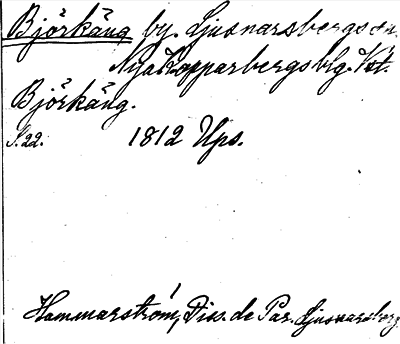 Björkäng by. Ljusnarsbergs sn.
Nya Kopparbergs blg. Vstm.
Björkäng.
S. 22. 1812 Ups.
Hammarström, Diss. de Par. Ljusnarsberg